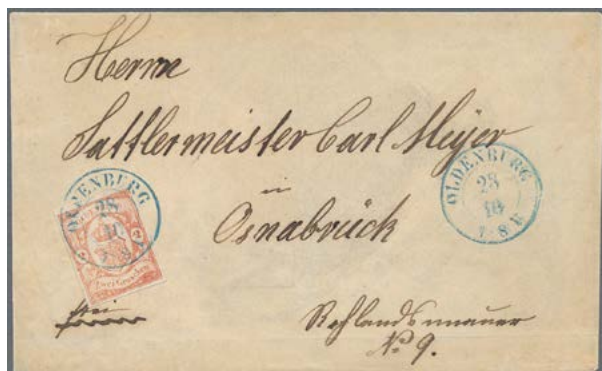 Herrn
Sattlermeister Carl Meyer
in
Osnabrück
OLDENBURG
28
10
7-8 V.
OLDENBURG
28
10
7-8 V.
2
Zwei Groschen
frei
№ 9.